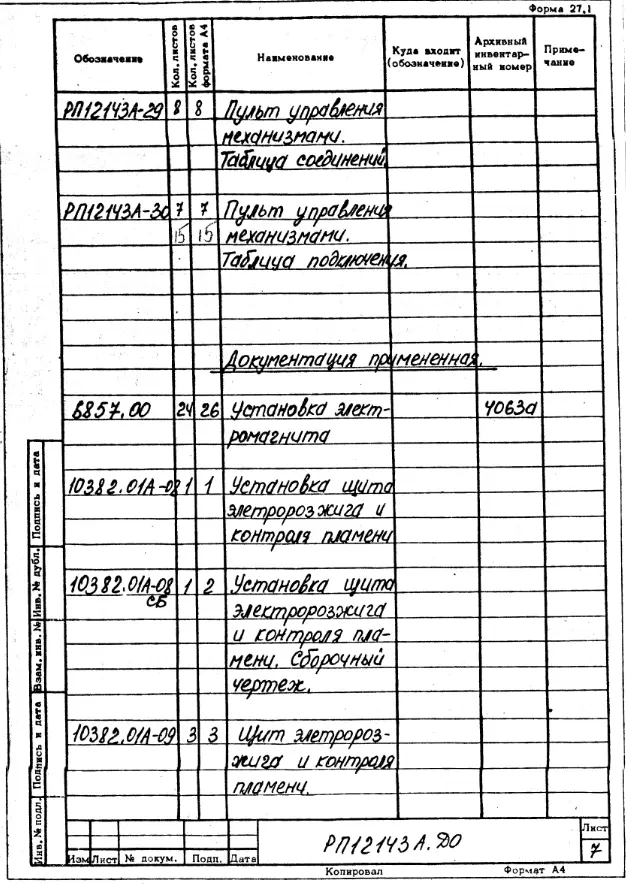 Форма 27,1
Обозначение Кол. листов Кол. листов формата А4 Наименование Куда входит (обозначение) Архивный инвентарный номер Примечание
РП12143А-29 8 8 Пульт управления
механизмами.
Таблица соединений
РП12143А-30 7 7 Пульт управления
15 15 механизмами.
Таблица подключения.
Документация примененная.
6857.00 24 26 Установка элект- 4063а
ромагнита
10382.01А-08 1 1 Установка щита
элетророзжига и
контроля пламени
10382.01А-08 1 2 Установка щита
СБ электророзжига
и контроля пла-
мени. Сборочный
чертеж.
10382.01А-09 3 3 Щит элетророз-
жига и контроля
пламени.
Инв. № подл. Подпись и дата Взам. инв. № Инв. № дубл. Подпись и дата
Изм Лист № докум. Подп. Дата
РП12143А.ДО
Лист
7
Копировал Формат А4